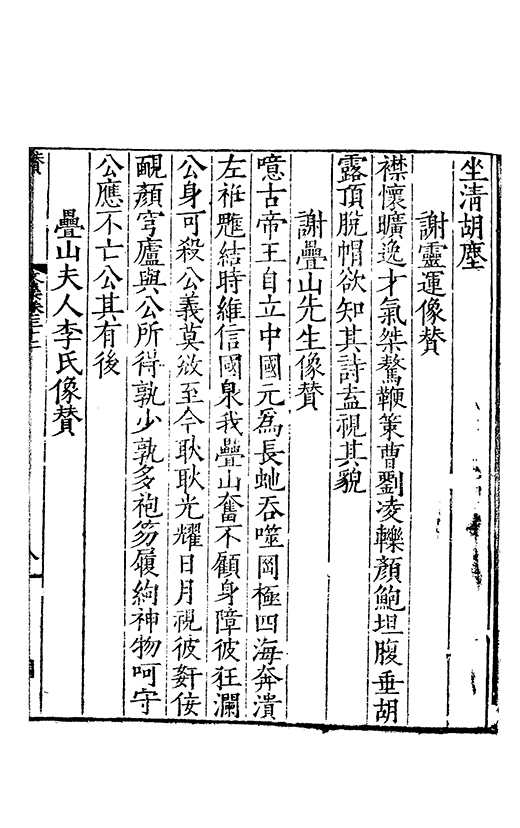 坐清胡塵
謝靈運像贊
襟懷曠逸才氣桀驁鞭策曹劉凌轢顔鮑坦腹垂胡
露頂脫帽欲知其詩盍視其貌
謝疊山先生像贊
噫古帝王自立中國元爲長虵吞噬罔極四海奔潰
左袵魋結時維信國泉我疊山奮不顧身障彼狂瀾
公身可殺公義莫㪘至今耿耿光耀日月視彼姧佞
靦顏穹廬與公所得孰少孰多袍笏履絇神物呵守
公應不亡公其有後
疊山夫人李氏像贊